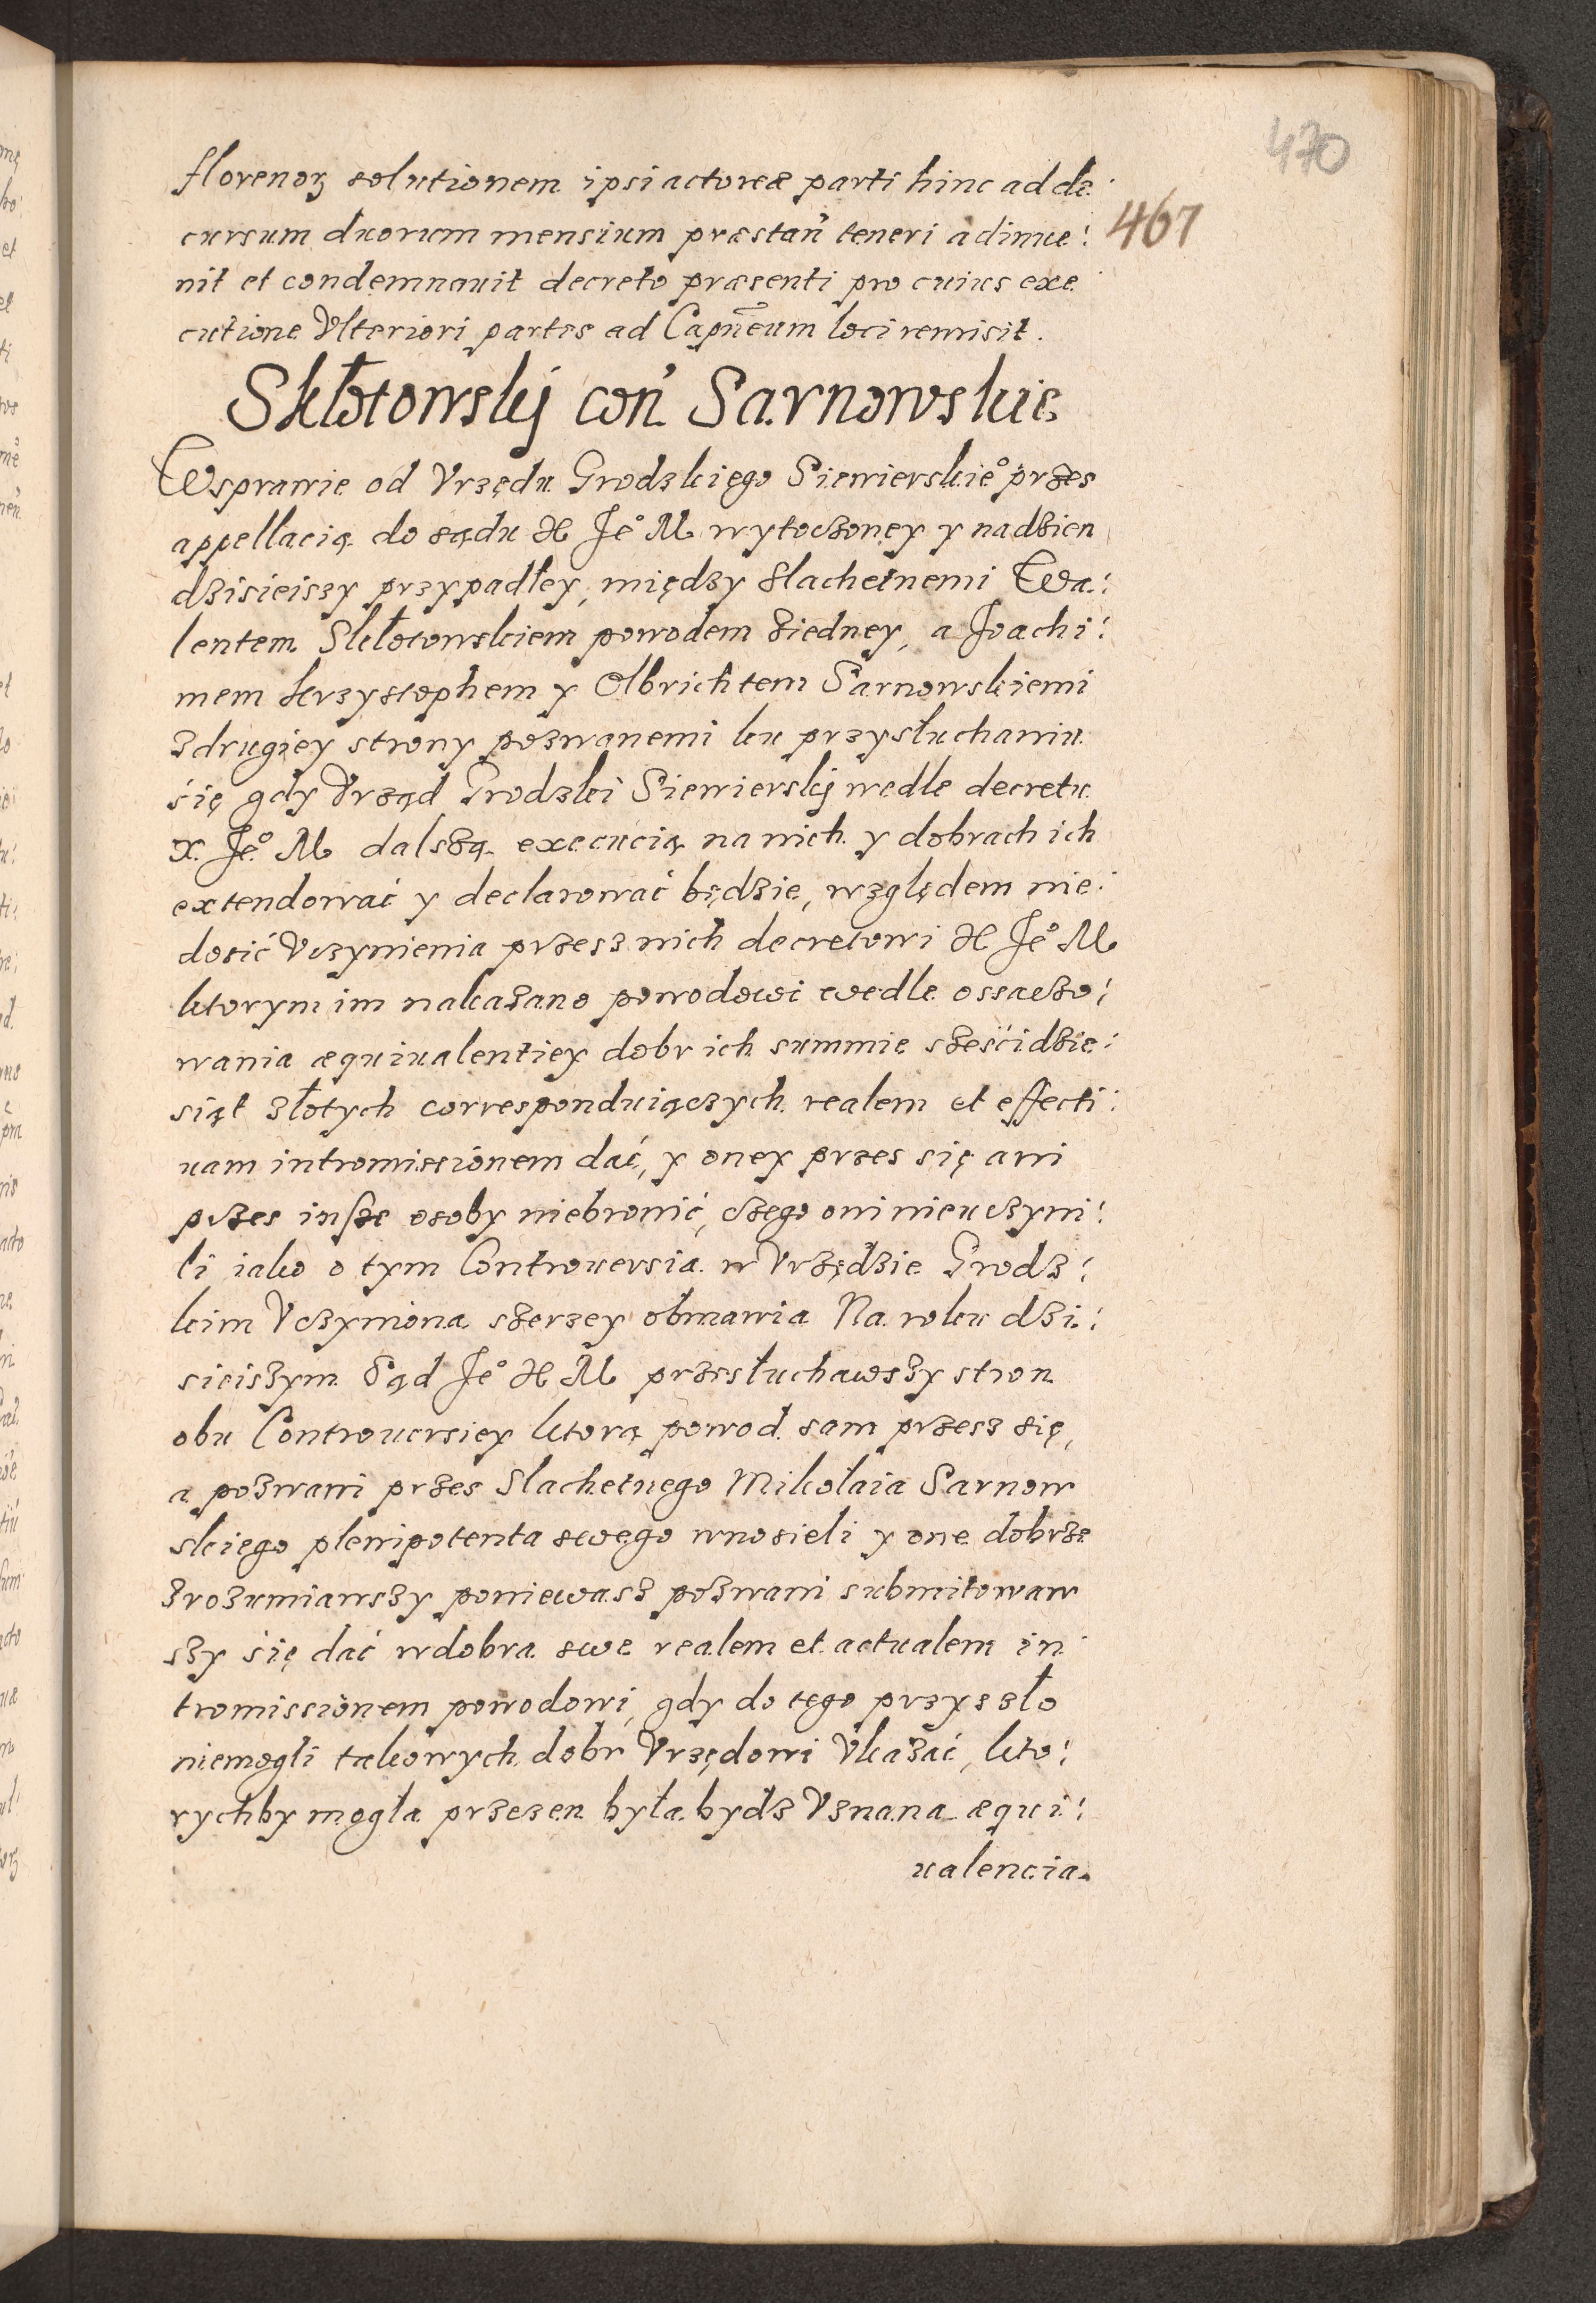 470
florenoꝝ solutionem ipsi actoreæ parti hinc ad de:
467
cursum duorum mensium præstan̄ teneri adinue:
nit et condemnauit decreto præsenti pro cuius exe:
cutione Vlteriori partes ad Capn̄eum loci remisit.
Skłotowskij con̄ Sarnowskie
Wsprawie od Vrzędu Grodzkięgo Siewierskieº przes
appellacią do sądu X Jeº M wytoczoney y nadzien
dzisieiszy przypadłey, między Slachetnemi Wa:
lentem Skłotowskiem powodem ziedney, a Joachi:
mem Krzysztophem y Olbrichtem Sarnowskiemi
zdrugiey strony pozwanemi ku przysłuchaniu
się gdy Vrząd Grodzki Siewierskij wedle decretu
X. Jeº M dalszą execucią na nich y dobrach ich
extendować y declarować będzie, względem nie:
dosić Vczynienia przesz nich decretowi X Jeº M
ktorym im nakazano powodowi wedle ossaczo:
wania æquiualentiey dobr ich summie sześcidzie:
siąt złotych correspenduiączych realem et effecti:
uam intromissionem dać, y oney przes się ani
przes insze osoby niebronić, czego oni nieuczyni:
li iako o tym Controuersia w Vrzędzie Grodz:
kim Vczyniona szerzey obmawia Na roku dzi:
sieiszym Sąd Jeº X M przesłuchawszy stron
obu Controuersiey ktorą powod sam przesz się,
a pozwani przes Slachetnego Mikołaia Sarnow
skiego plenipotenta swego wnosieli y one dobrze
zrozumiawszy poniewasz pozwani submitowaw
szy się dać wdobra swe realem et actualem in:
tromissionem powodowi, gdy do tego przyszło
niemogli takowych dobr Vrzędowi Vkazać, kto:
rychby mogła przezen była bydz Vznana æqui:
ualencia.